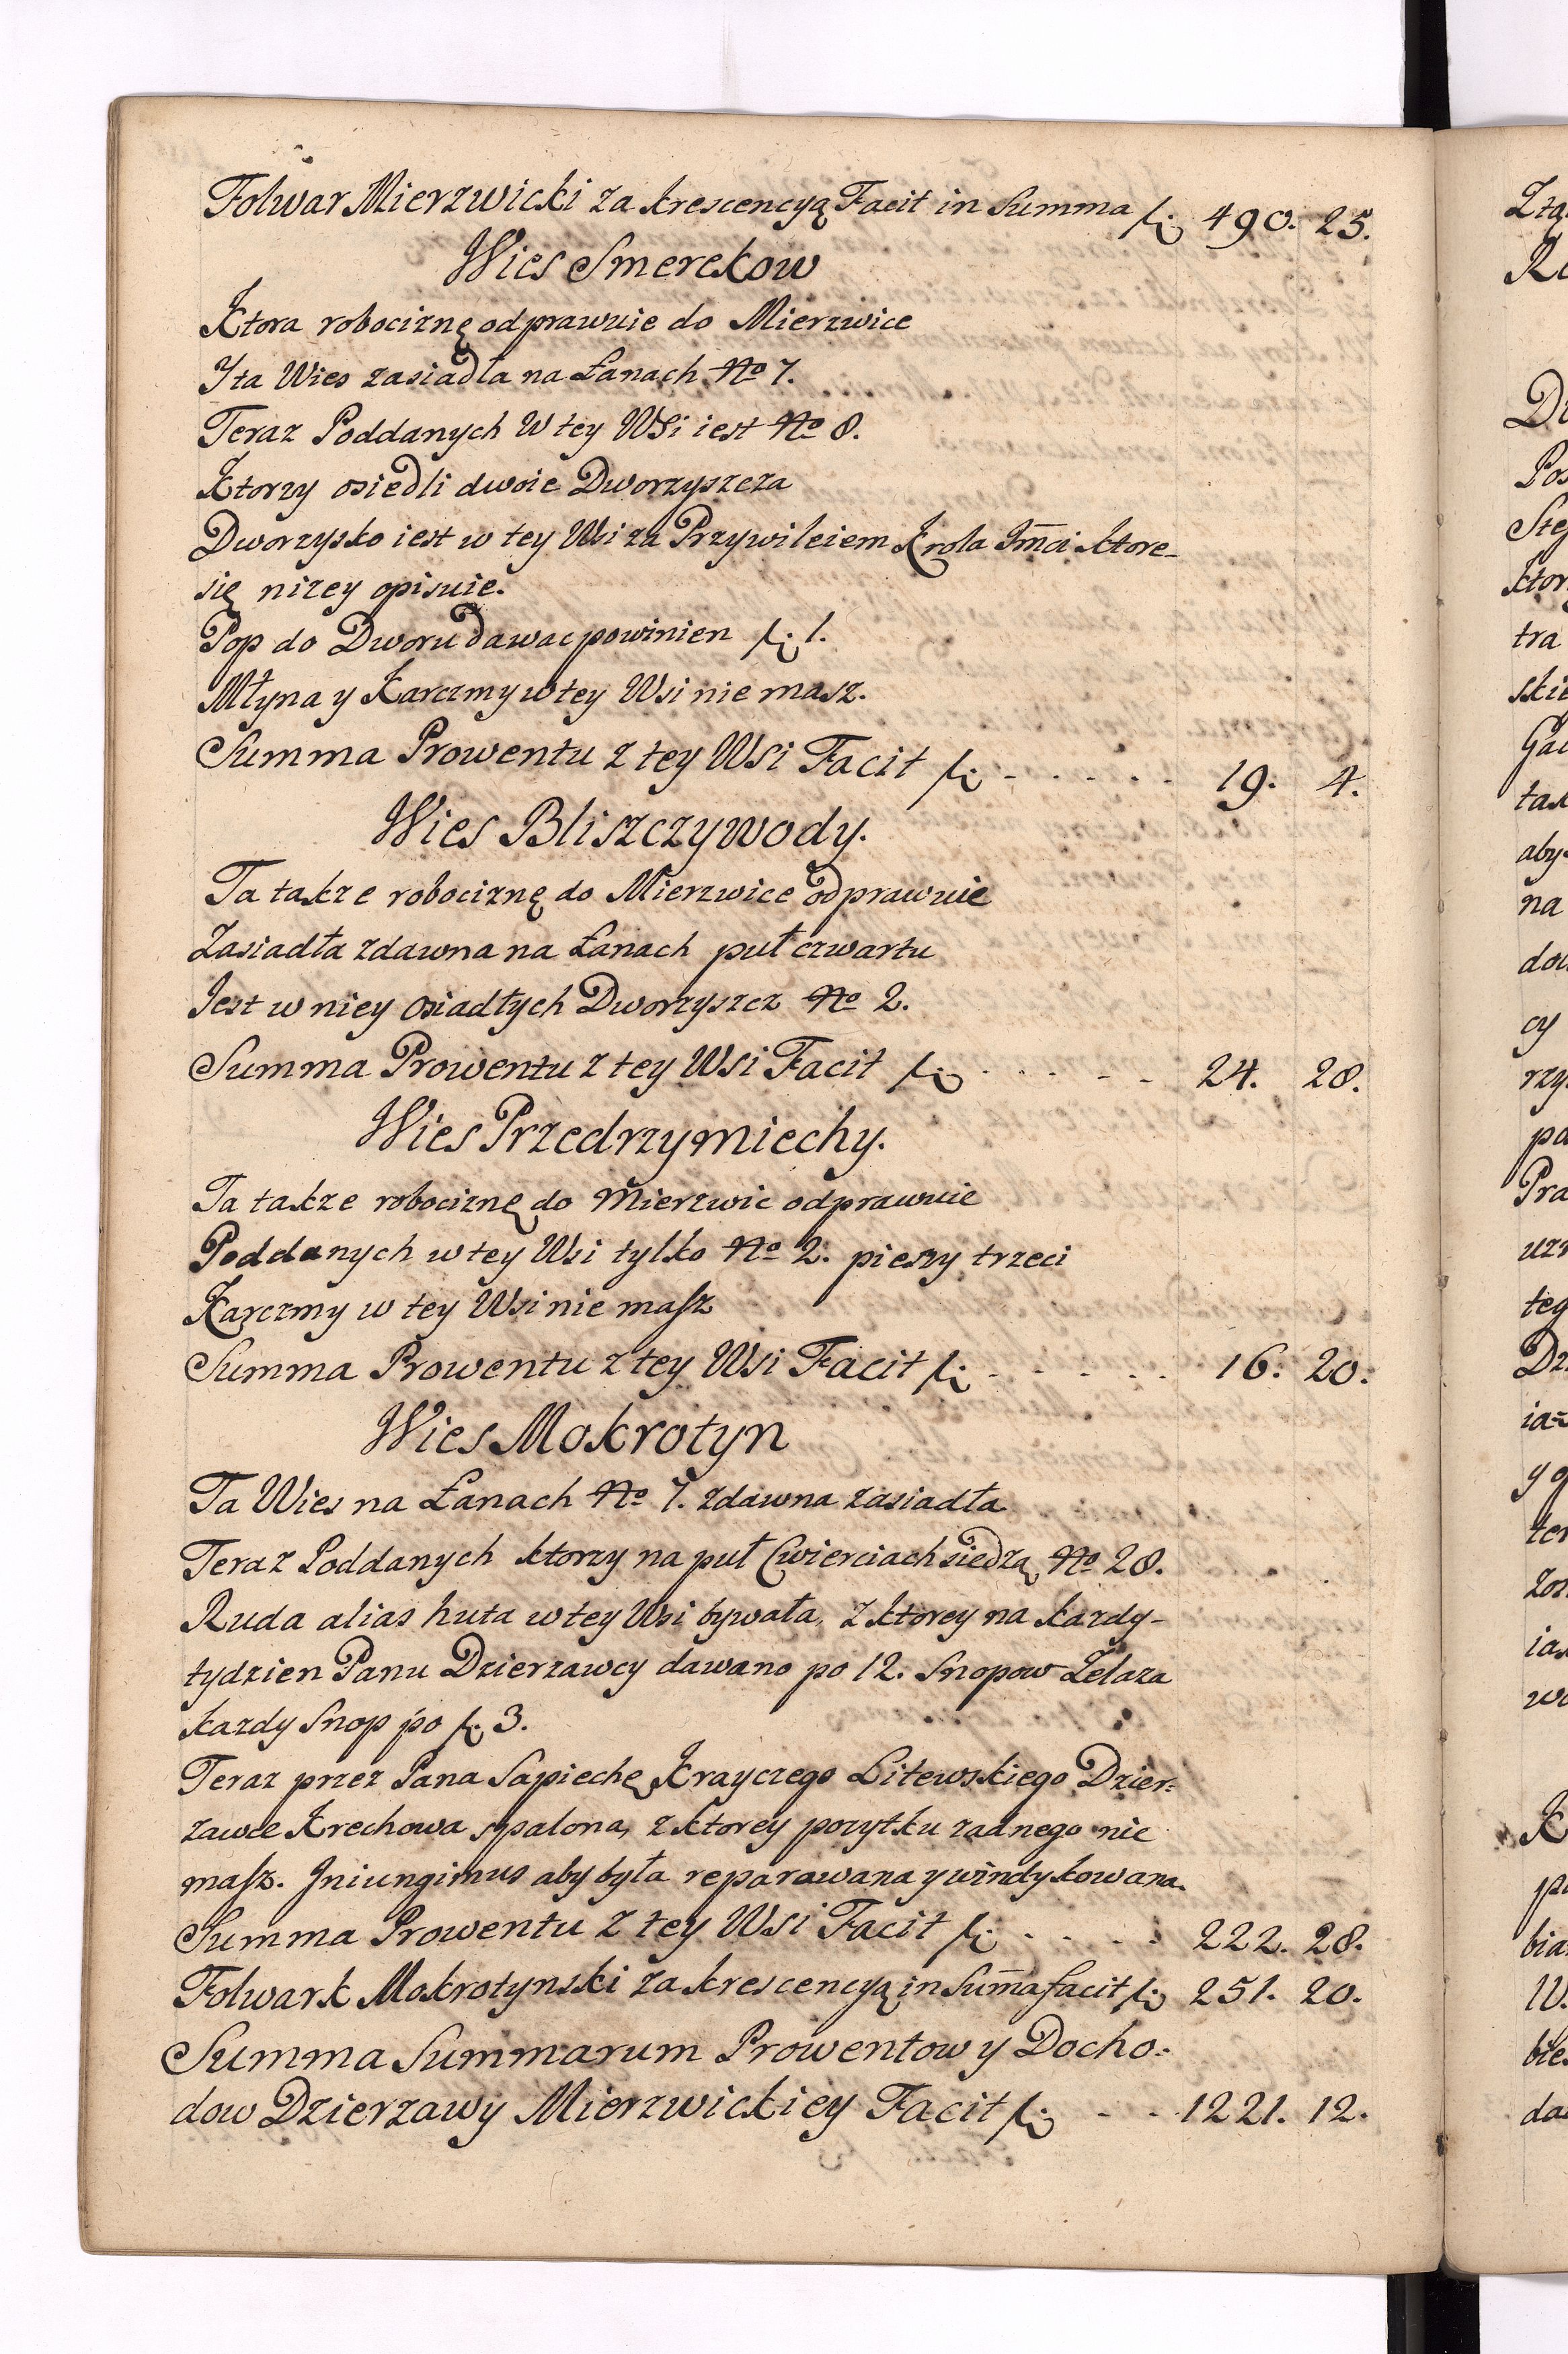 Folwar Mierzwicki za krescencyą Facit in Summa f. 490. 25.
Wies Smerekow
Ktora robociznę odprawuie do Mierzwice
Y ta Wies zasiadła na Łanach No 7.
Teraz Poddanych W tey Wsi iest No 8.
Ktorzy osiedli dwoie Dworzyszcza
Dworzysko iest w tey Wsi za Przywileiem Krola Jm̃ci ktore-
się nizey opisuie.
Pop do Dworu dawac powinien f. 1.
Młyna y Karczmy w tey Wsi nie masz.
Summa Prowentu z tey Wsi Facit f. - - - - - 19. 4.
Wies Bliszczywody.
Ta takze robociznę do Mierzwice odprawuie
Zasiadła zdawna na Łanach puł czwartu
Jest w niey osiadłych Dworzyszcz No 2.
Summa Prowentu z tey Wsi Facit f. - - - - - 24. 28.
Wies Przedrzymiechy.
Ta takze robociznę do Mierzwic odprawuie
Poddanych w tey Wsi tylko No 2. pieszy trzeci
Karczmy w tey Wsi nie masz
Summa Prowentu z tey Wsi Facit f. - - - - - 16. 20.
Wies Mokrotyn
Ta Wies na Łanach No 7. zdawna zasiadła
Teraz Poddanych ktorzy na puł Cwierciach siedzą No 28.
Ruda alias huta w tey Wsi bywała, z ktorey na kazdy-
tydzien Panu Dzierzawcy dawano po 12. Snopow Zelaza
kazdy Snop po f. 3.
Teraz przez Pana Sapiechę Krayczego Litewskiego Dzier=
zawce Krechowa spalona, z ktorey pozytku zadnego nie
masz. Jniungimus aby była reparawana y windykowana.
Summa Prowentu z tey Wsi Facit f. - - - - 222. 28.
Folwark Mokrotynski za krescencyą in Sum̃a facit f. 251. 20.
Summa Summarum Prowentow y Docho=
dow Dzierzawy Mierzwickiey Facit f. - - 1221. 12.